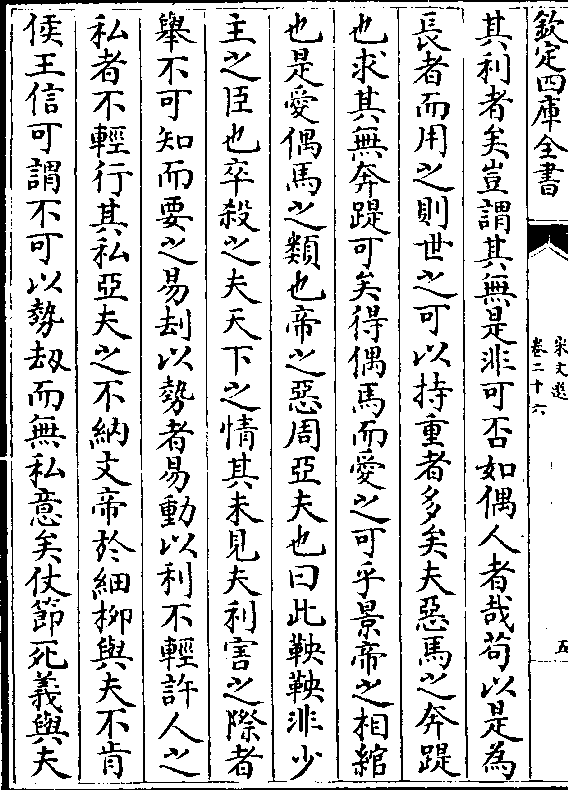 欽定四庫全書
宋文選
卷二十六
五
其利者矣豈謂其無是非可否如偶人者哉苟以是為
長者而用之則世之可以持重者多矣夫惡馬之奔踶
也求其無奔踶可矣得偶馬而愛之可乎景帝之相綰
也是愛偶馬之類也帝之惡周亞夫也曰此鞅鞅非少
主之臣也卒殺之夫天下之情其未見夫利害之際者
舉不可知而要之易刦以勢者易動以利不輕許人之
私者不輕行其私亞夫之不納文帝於細柳與夫不肯
侯王信可謂不可以勢刼而無私意矣仗節死義與夫